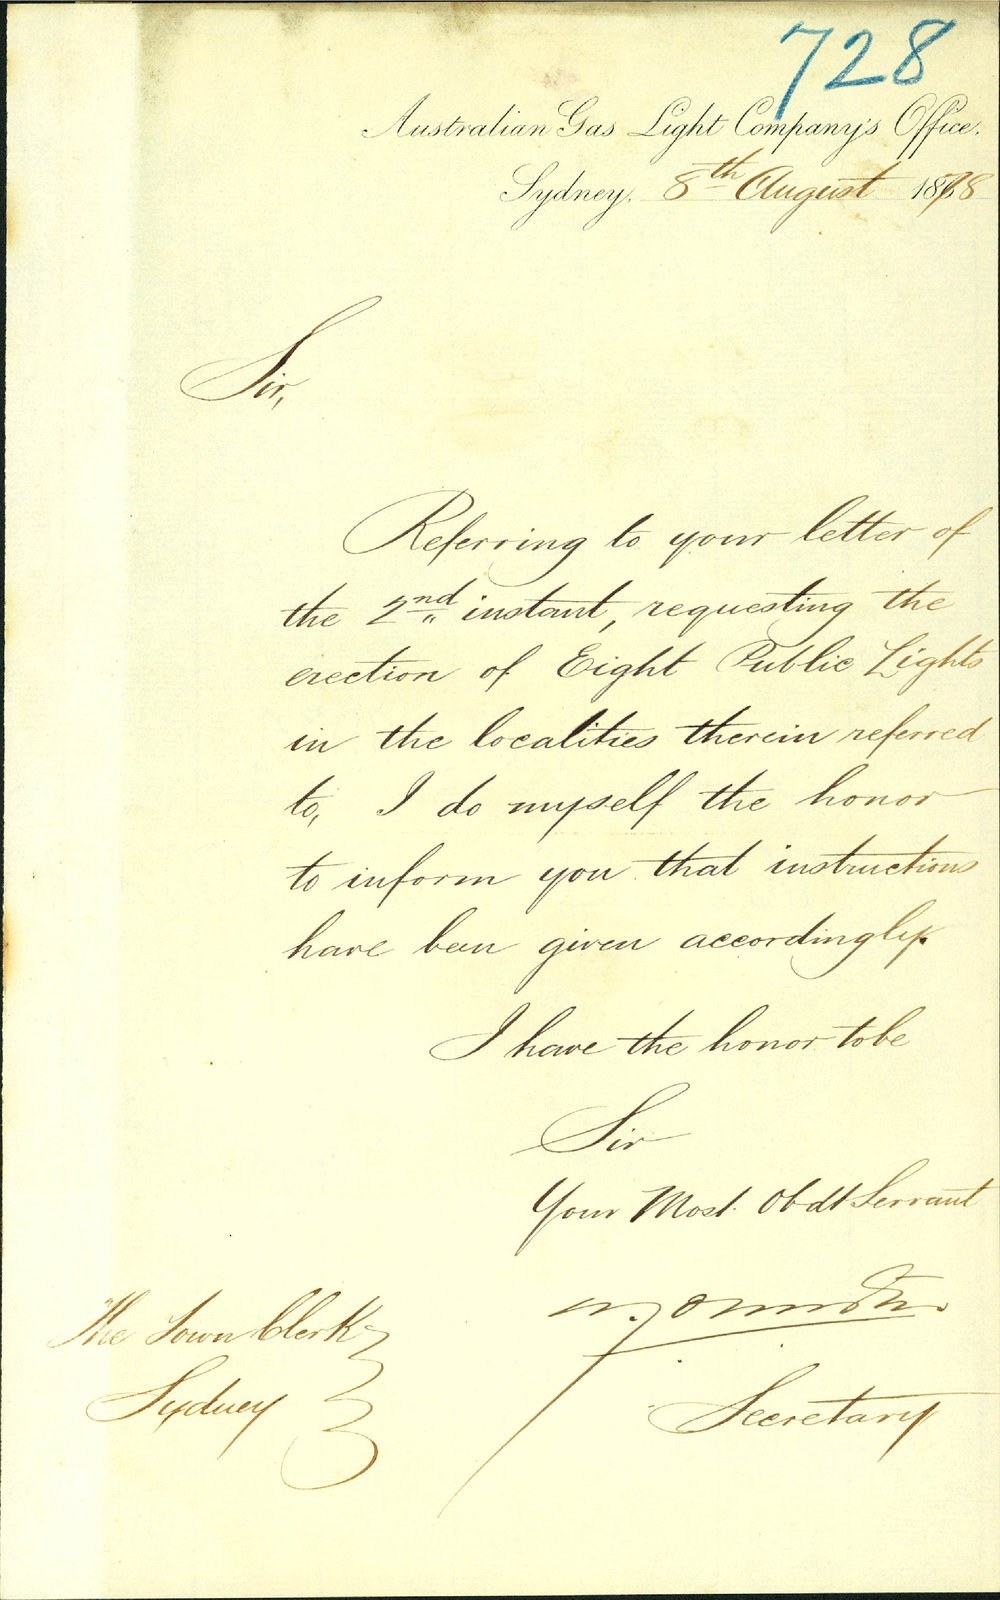 728
Australian Gas Light Company's Office.
Sydney, 8th August 1878
Sir,
Referring to your letter of
the 2nd instant, requesting the
erection of Eight Public Lights
in the localities therein referred
to, I do myself the honor
to inform you that instructions
have been given accordingly.
I have the honor to be
Sir
Your Most Obdt Servant
The Town Clerk
Sydney
Secretary